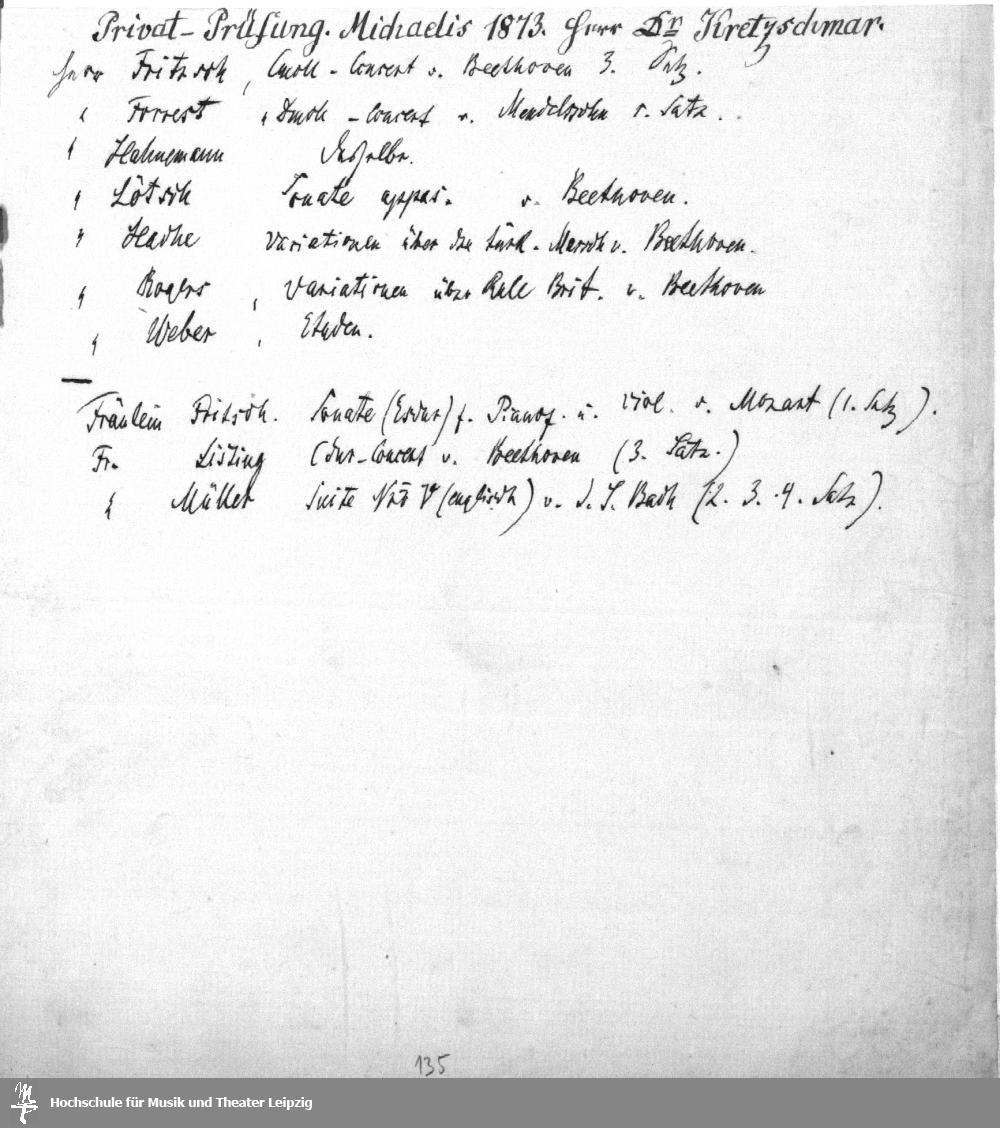 Privat-Prüfung. Michaelis 1873. Herr Dr Kretzschmar.
Herr Fritzsch, Cmoll-Concert v. Beethoven 3. Satz.
" Forrest, Dmoll-Concert v. Mendelssohn 1. Satz.
" Hahnemann Dasselbe.
" Lötsch Sonate appas. v. Beethoven.
" Hache Variationen über den türk. Marsch v. Beethoven.
" Rogers, Variationen über Rule Brit. v. Beethoven
" Weber, Etuden.
Fräulein Fritsch. Sonate (Esdur) f. Pianof. u. Viol. v. Mozart (1. Satz).
Fr. Listing Cdur-Concert v. Beethoven (3. Satz.)
" Müller Suite Nro V (englisch) v. J. S. Bach (2. 3. 4. Satz).
135
Hochschule für Musik und Theater Leipzig